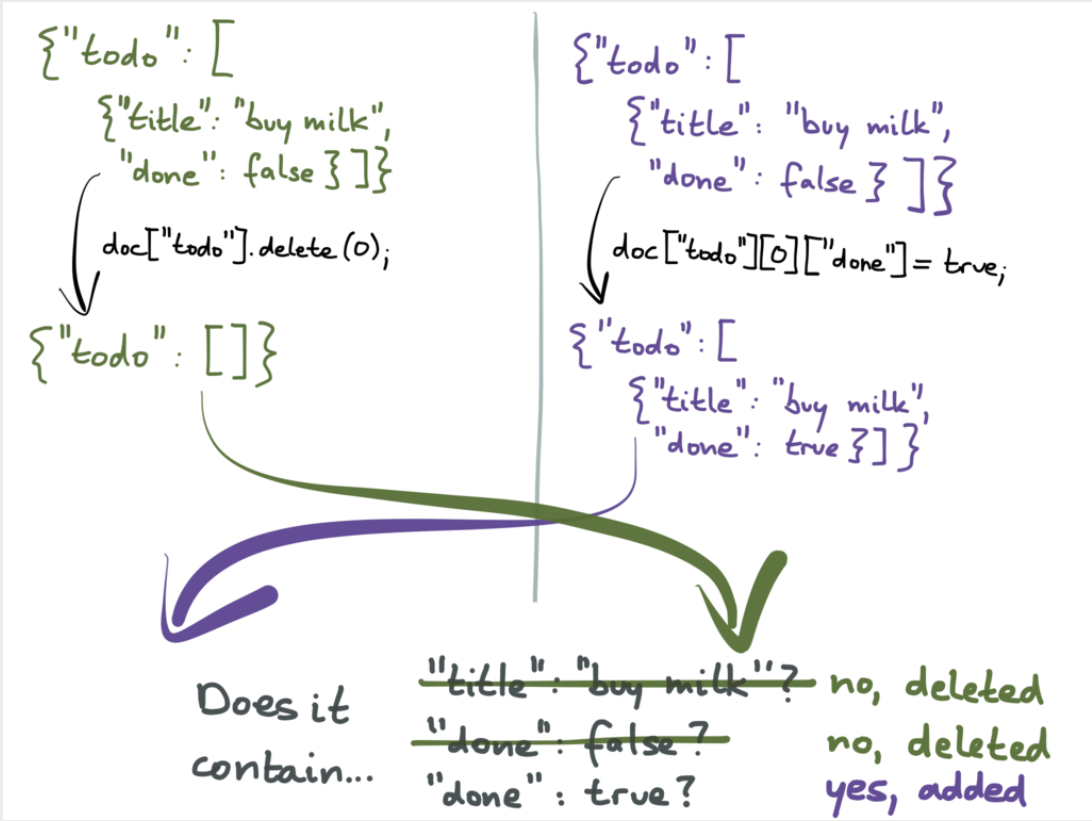 {"todo": [
{"title": "buy milk",
"done": false } ] }
doc["todo"].delete(0);
{"todo": [ ] }
{"todo": [
{"title": "buy milk",
"done": false } ] }
doc["todo"][0]["done"] = true;
{"todo": [
{"title": "buy milk",
"done": true } ] }
Does it
contain...
"title": "buy milk"? no, deleted
"done": false? no, deleted
"done": true? yes, added